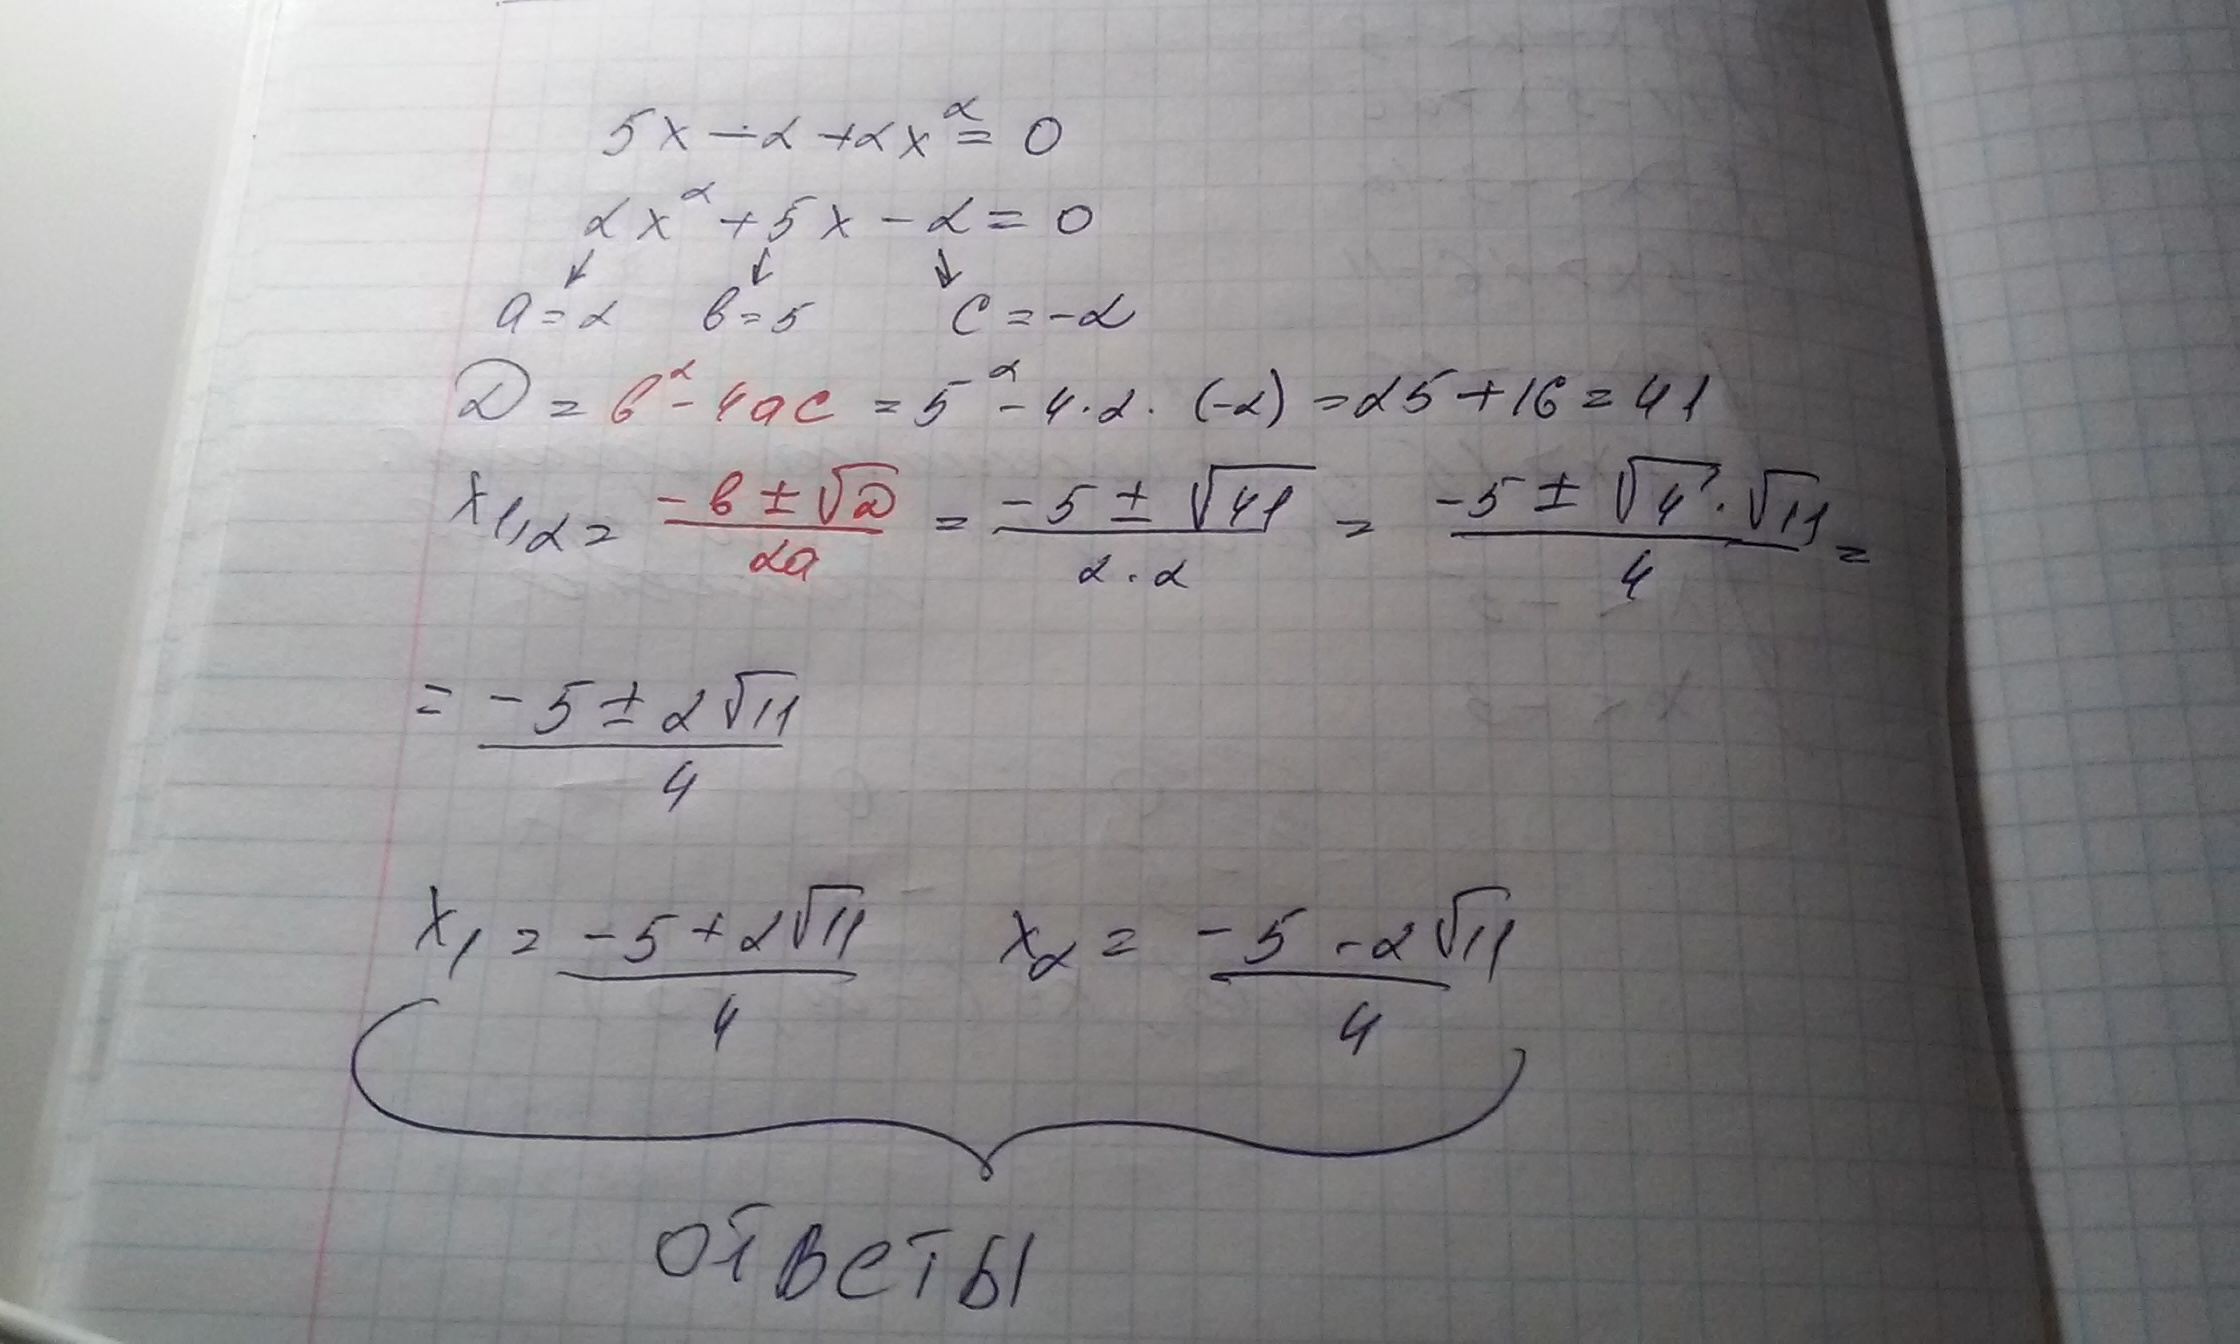 5x - 2 + 2x² = 0
2x² + 5x - 2 = 0
a = 2 в = 5 c = -2
D = в² - 4ac = 5² - 4·2·(-2) = 25 + 16 = 41
x₁,₂ = (-в ± √D)/(2a) = (-5 ± √41)/(2·2) = (-5 ± √4·√11)/4 =
= (-5 ± 2√11)/4
x₁ = (-5 + 2√11)/4 x₂ = (-5 - 2√11)/4
ответы